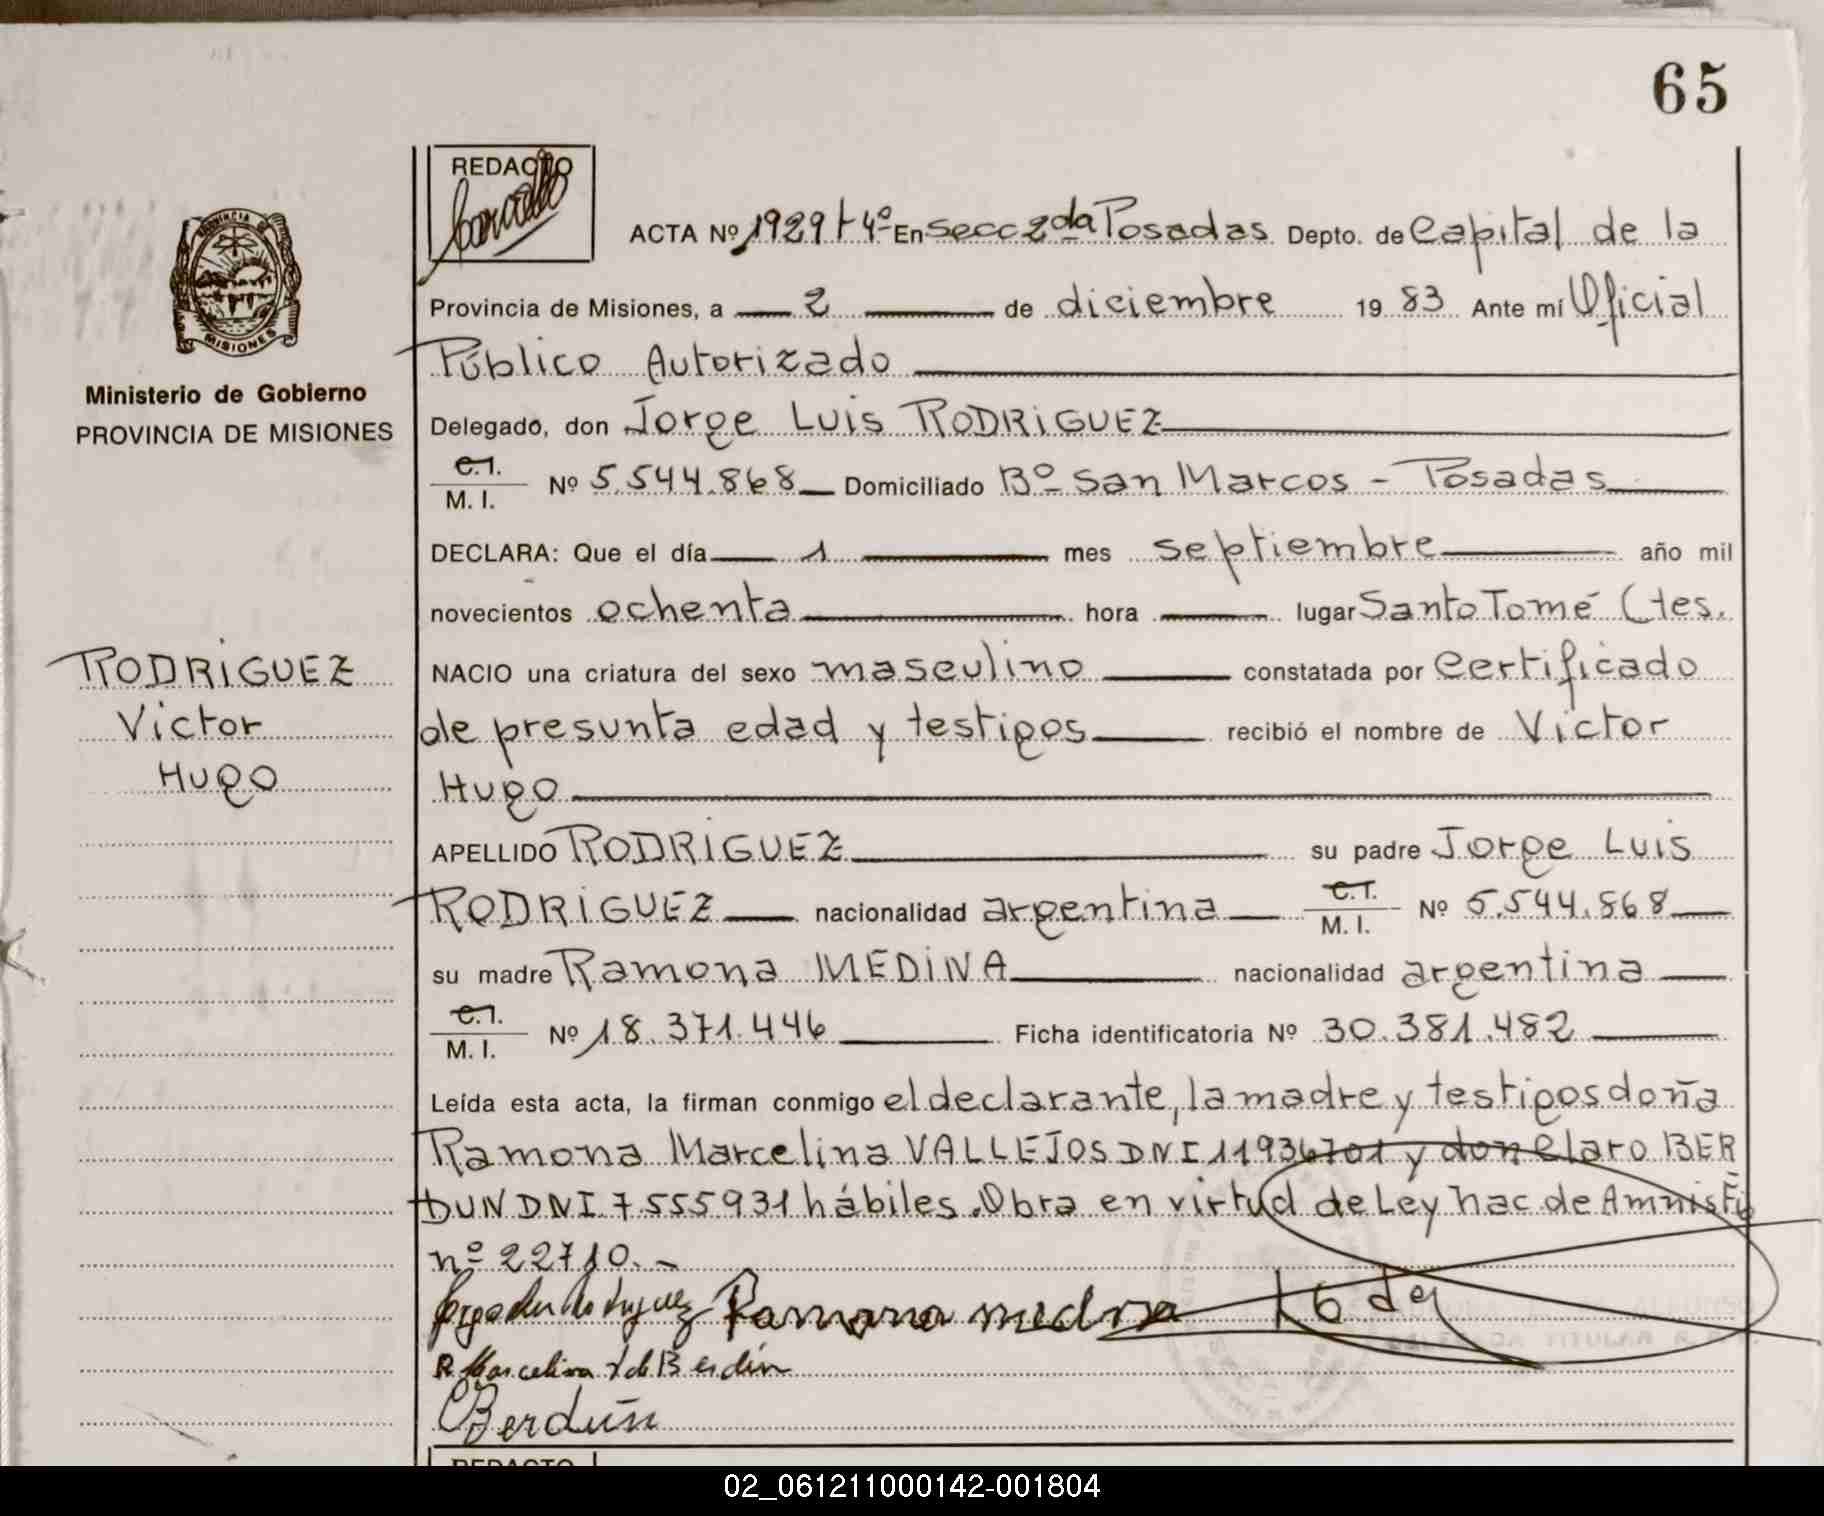 65
REDACTO
ACTA Nº 1929 t 4º En secc 2da Posadas Depto. de Capital de la
Provincia de Misiones, a 2 de diciembre 19 83 Ante mí Oficial
Público Autorizado
PROVINCIA DE
MISIONES
Ministerio de Gobierno
PROVINCIA DE MISIONES
Delegado, don Jorge Luis RODRIGUEZ
C.I.
M. I. Nº 5.544.868 Domiciliado Bº San Marcos - Posadas
DECLARA: Que el día 1 mes septiembre año mil
novecientos ochenta hora lugar Santo Tomé Ctes.
RODRIGUEZ
Victor
Hugo
NACIO una criatura del sexo masculino constatada por certificado
de presunta edad y testigos recibió el nombre de Victor
Hugo
APELLIDO RODRIGUEZ su padre Jorge Luis
RODRIGUEZ nacionalidad argentina C.I. M. I. Nº 5.544.868
su madre Ramona MEDINA nacionalidad argentina
C.I.
M. I. Nº 18.371.446 Ficha identificatoria Nº 30.381.482
Leída esta acta, la firman conmigo el declarante, la madre y testigos doña
Ramona Marcelina VALLEJOS DNI 11936701 y don Claro BER
DUN DNI 7.555931 hábiles. Obra en virtud de Ley nac. de Amnistí
nº 22710.-
Ramona medina
R Marcelina V de Berdún
Berdún
REDACTO
02_061211000142-001804